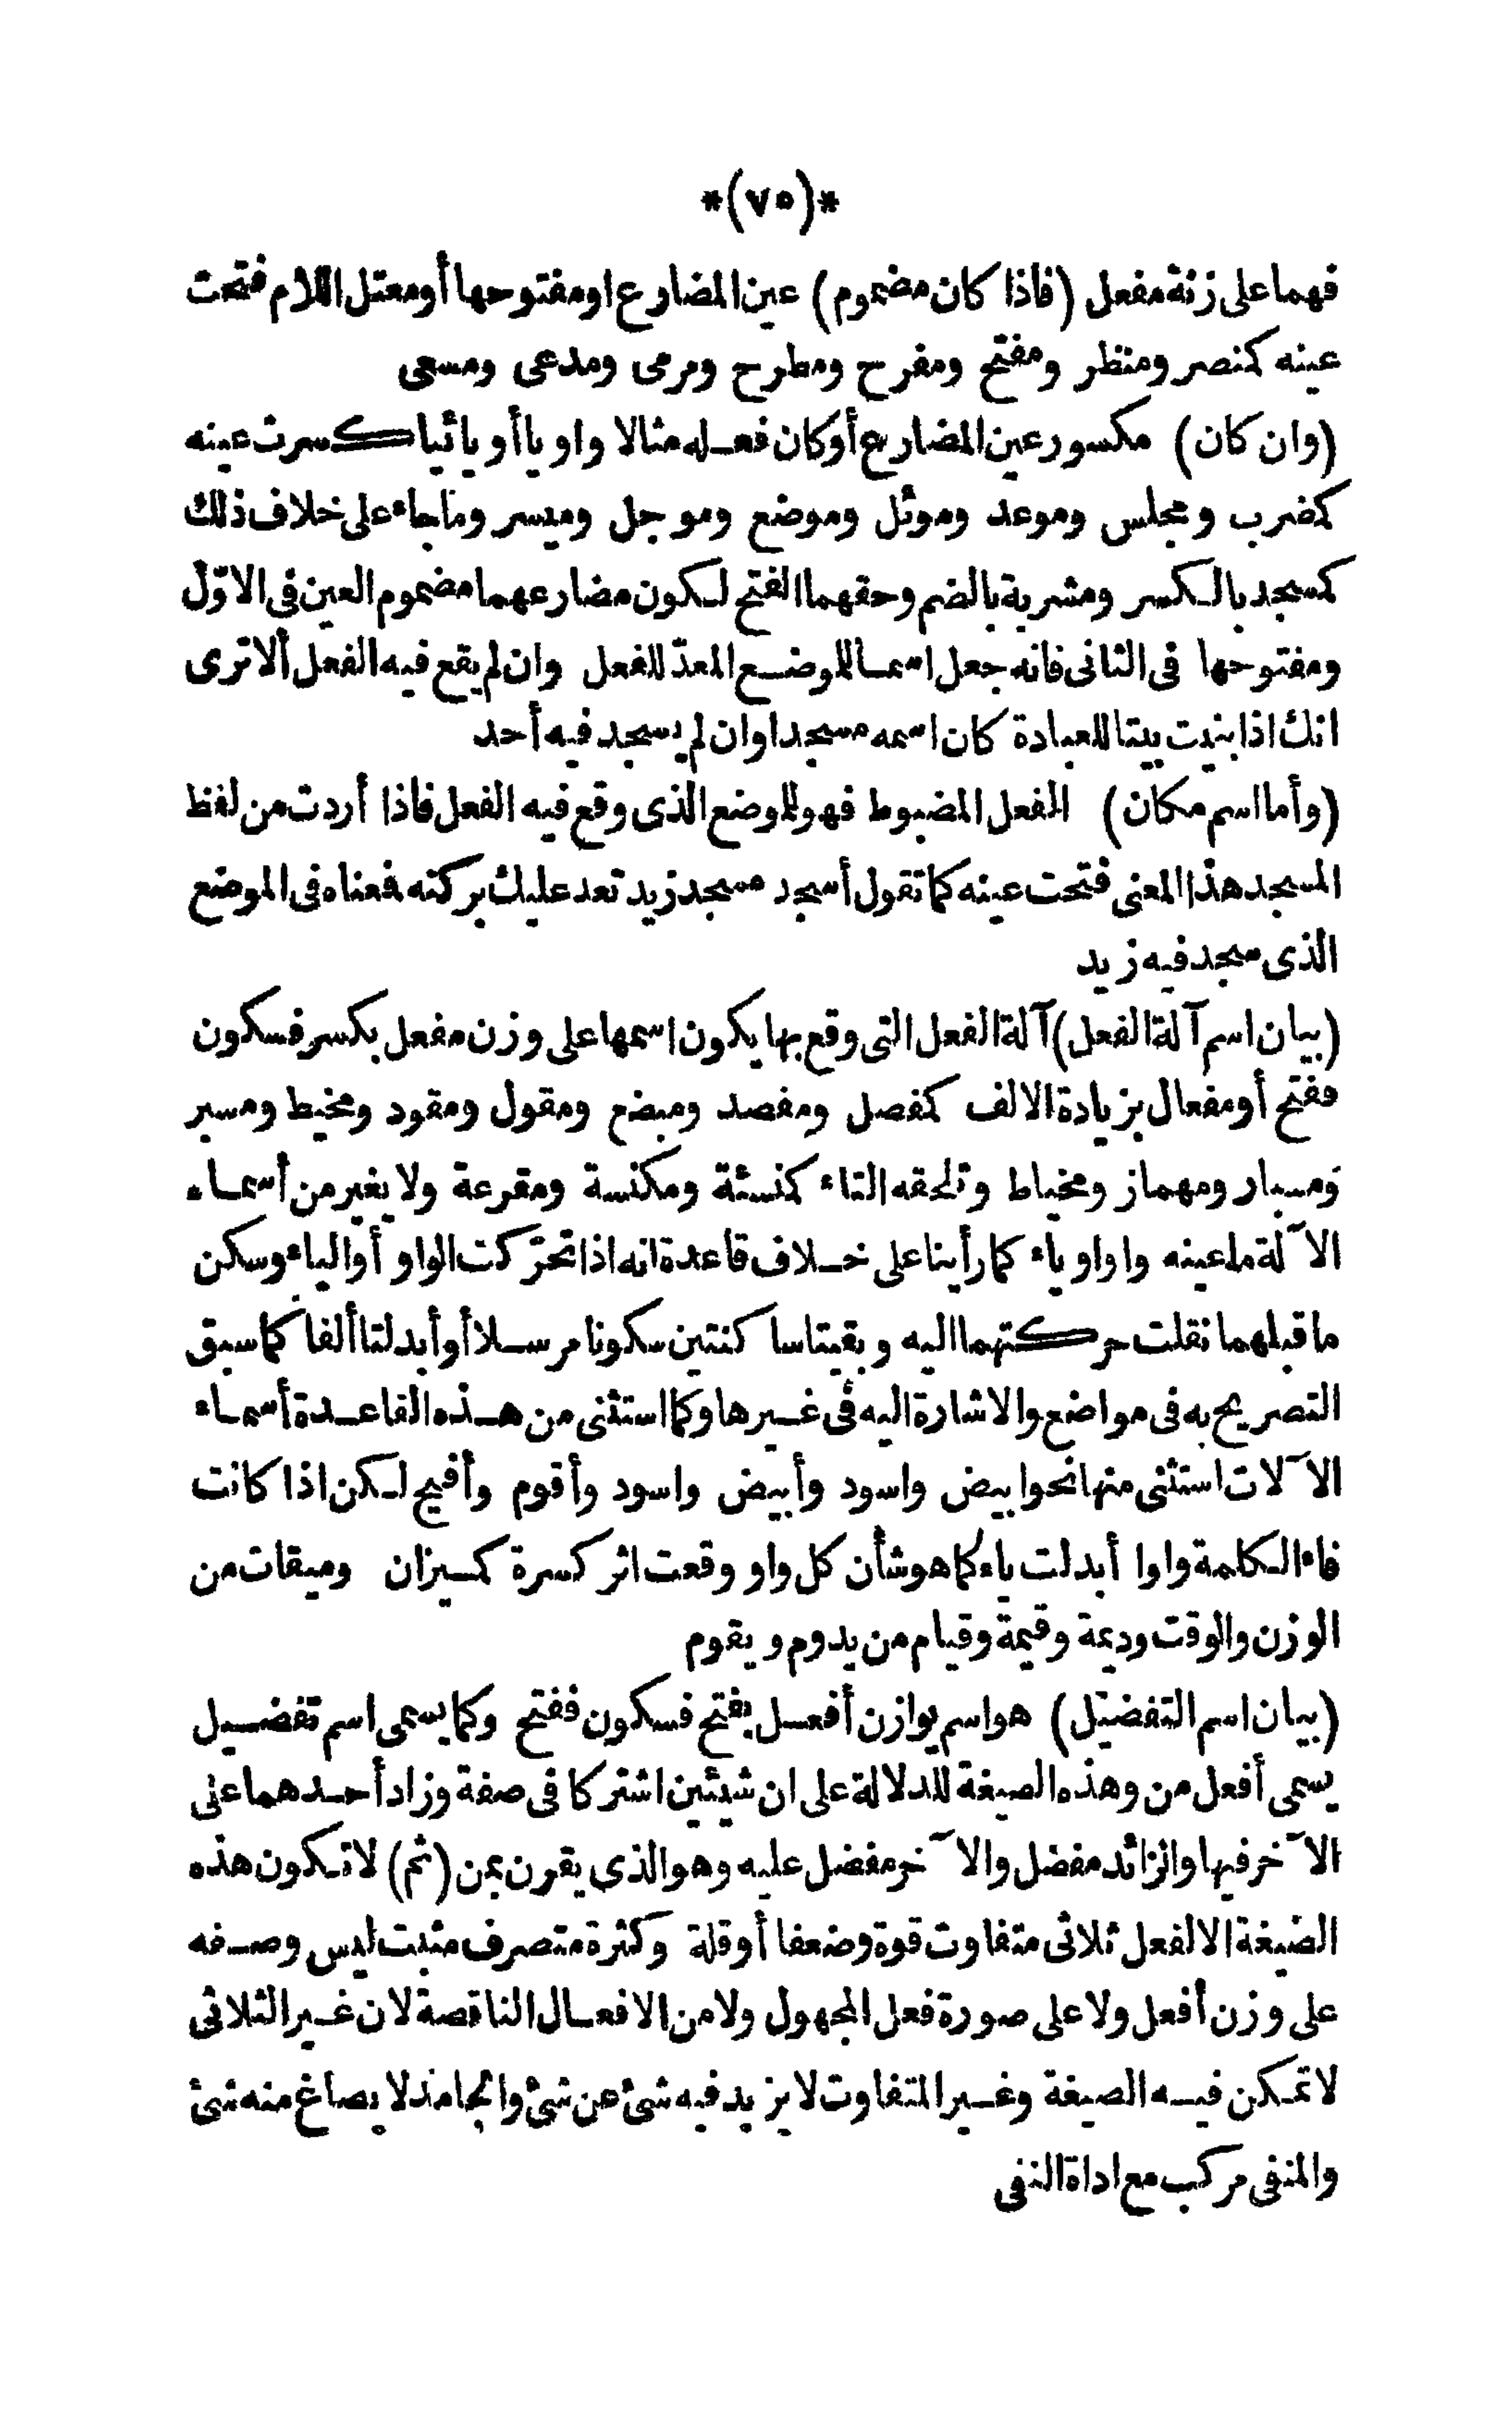 *(٧٥)*
فهما على زنة مفعل (فاذا كان مضموم) عين المضارع او مفتوحها أو معتل اللام فتحت
عينه كمنصر ومنظر ومفتح ومفرح ومطرح ومرمى ومدعى ومسعى
(وان كان) مكسور عين المضارع أو كان فعله مثالا واويا أو يائيا كسرت عينه
كمضرب ومجلس وموعد وموئل وموضع وموجل وميسر وما جاء على خلاف ذلك
كمسجد بالكسر ومشربة بالضم وحقهما الفتح لكون مضارعهما مضموم العين فى الاوّل
ومفتوحها فى الثانى فانه جعل اسما للموضع المعدّ للفعل وان لم يقع فيه الفعل ألا ترى
انك اذا بنيت بيتا للعبادة كان اسمه مسجدا وان لم يسجد فيه أحد
(وأما اسم مكان) الفعل المضبوط فهو للموضع الذى وقع فيه الفعل فاذا أردت من لفظ
المسجد هذا المعنى فتحت عينه كما تقول أسجد مسجد زيد تعد عليك بركته فمعناه فى الموضع
الذى سجد فيه زيد
(بيان اسم آلة الفعل) آلة الفعل التى وقع بها يكون اسمها على وزن مفعل بكسر فسكون
ففتح أو مفعال بزيادة الالف كمفصل ومفصد ومبضع ومقول ومقود ومخيط ومسبر
ومسبار ومهماز ومخياط وتلحقه التاء كمنسئة ومكنسة ومقرعة ولا يغير من أسماء
الآلة ما عينه واو او ياء كما رأينا على خلاف قاعدة انه اذا تحرّكت الواو أو الياء وسكن
ما قبلهما نقلت حركتهما اليه وبقيتا ساكنتين سكونا مرسلا أو أبدلتا ألفا كما سبق
التصريح به فى مواضع والاشارة اليه فى غيرها وكما استثنى من هذه القاعدة أسماء
الآلات استثنى منها نحو ابيض واسود وأبيض واسود وأقوم وأفيح لكن اذا كانت
فاء الكلمة واوا أبدلت ياء كما هو شأن كل واو وقعت اثر كسرة كميزان وميقات من
الوزن والوقت وديمة وقيمة وقيام من يدوم ويقوم
(بيان اسم التفضيل) هو اسم يوازن أفعل بفتح فسكون ففتح وكما يسمى اسم تفضيل
يسمى أفعل من وهذه الصيغة للدلالة على ان شيئين اشتركا فى صفة وزاد أحدهما على
الآخر فيها والزائد مفضل والآخر مفضل عليه وهو الذى يقرن بمن (ثم) لا تكون هذه
الصيغة الا لفعل ثلاثى متفاوت قوة وضعفا أو قلة وكثرة متصرف مثبت ليس وصفه
على وزن أفعل ولا على صورة فعل المجهول ولا من الافعال الناقصة لان غير الثلاثى
لا تمكن فيه الصيغة وغير المتفاوت لا يزيد فيه شئ عن شئ والجامد لا يصاغ منه شئ
والمنفى مركب مع اداة النفى